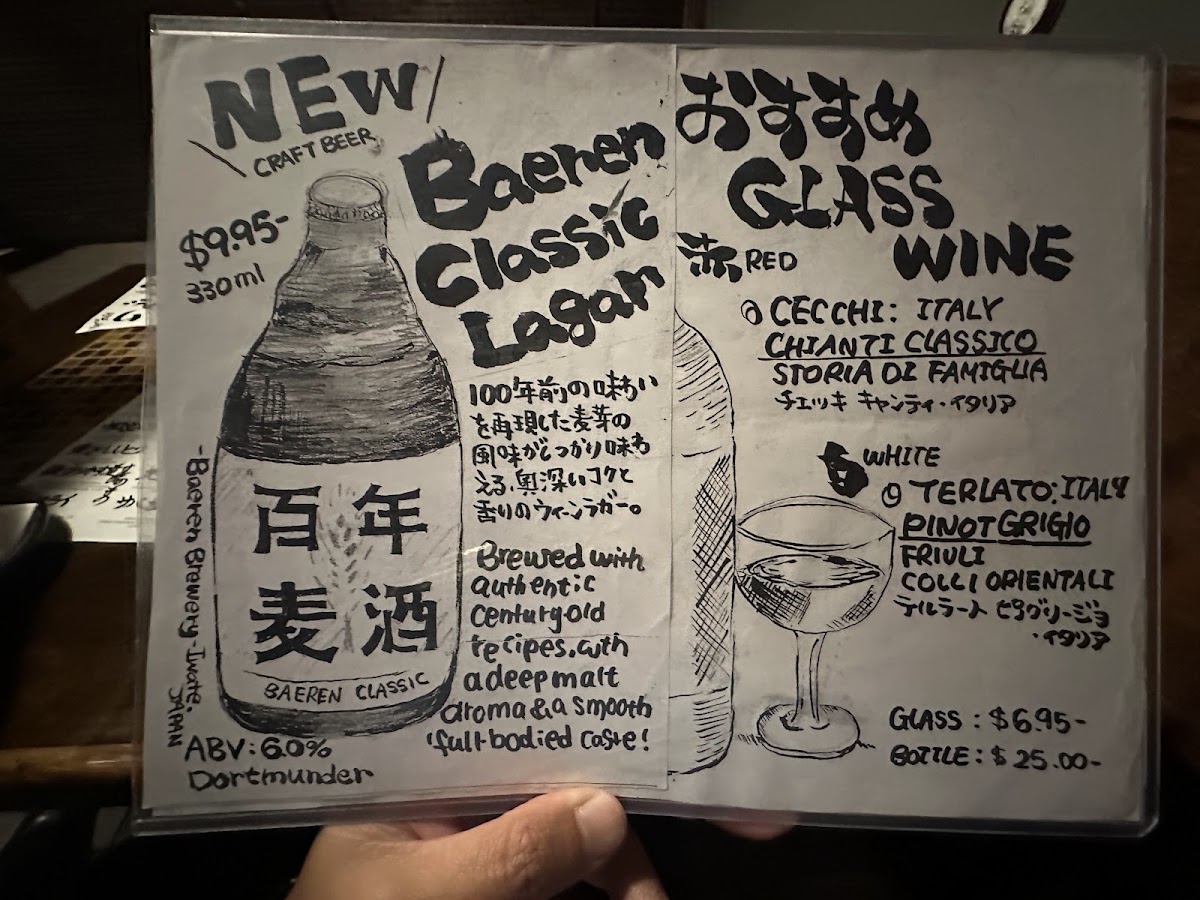 NEW
CRAFT BEER
$9.95-
330ml
Baeren
Classic
Lagar
100年前の味わい
を再現した麦芽の
風味がしっかり味わ
える、奥深いコクと
香りのウィーンラガー。
Brewed with
authentic
century old
recipes. with
a deep malt
aroma & a smooth
full-bodied taste!
百年
麦酒
BAEREN CLASSIC
-Baeren Brewery-Iwate.
JAPAN
ABV: 6.0%
Dortmunder
おすすめ
GLASS
WINE
赤 RED
CECCHI: ITALY
CHIANTI CLASSICO
STORIA DI FAMIGLIA
チェッキ キャンティ・イタリア
白 WHITE
TERLATO: ITALY
PINOT GRIGIO
FRIULI
COLLI ORIENTALI
テルラート ピノグリージョ
・イタリア
GLASS : $6.95-
BOTTLE : $25.00-